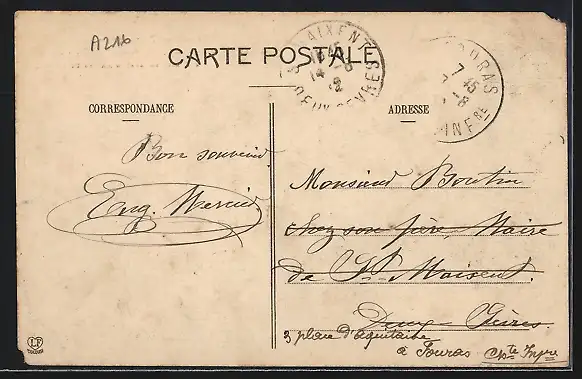 A216
CARTE POSTALE
AIXENT
DEUX-SEVRES
FOURAS
7 15
-8
INF RE
CORRESPONDANCE
ADRESSE
Bon souvenir
Eug. Mercier
Monsieur Boutin
chez son père, Maire
de St Maixent.
Deux-Sèvres.
3 place d'aquitaine
à Fouras Chte Infre